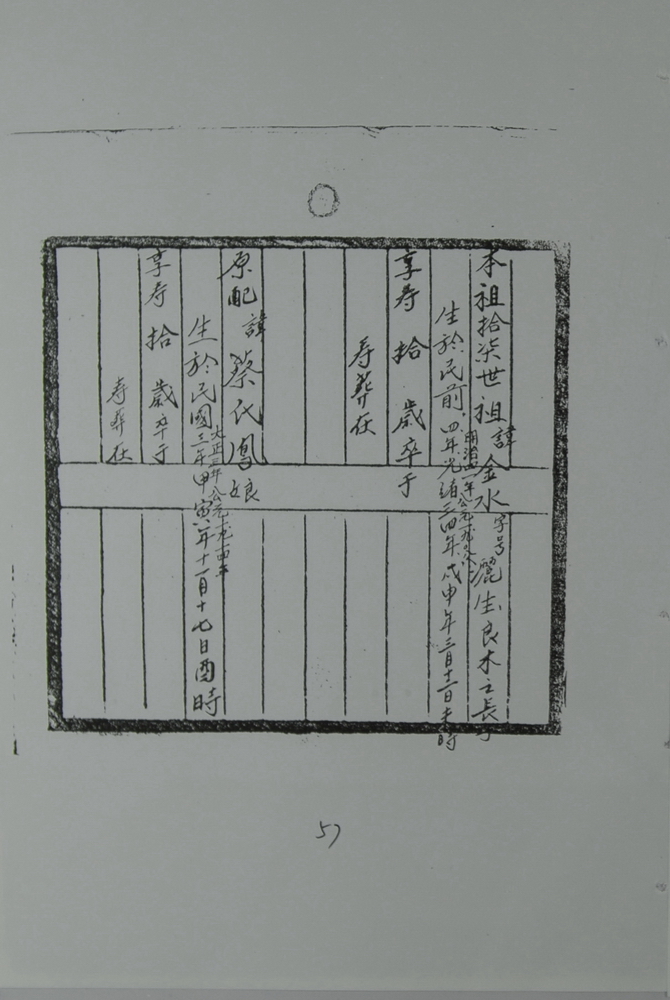 本祖拾柒世祖諱金水字号灑生良木之長子
生於民前四年光緒三四年戊申年三月十二日未時
明治四一年公元一九〇八
享寿 拾 歲卒于
寿葬在
原配諱蔡代鳳娘
大正三年公元一九一四年
生於民國三年甲寅年十一月十七日酉時
享寿 拾 歲卒于
寿葬在
57